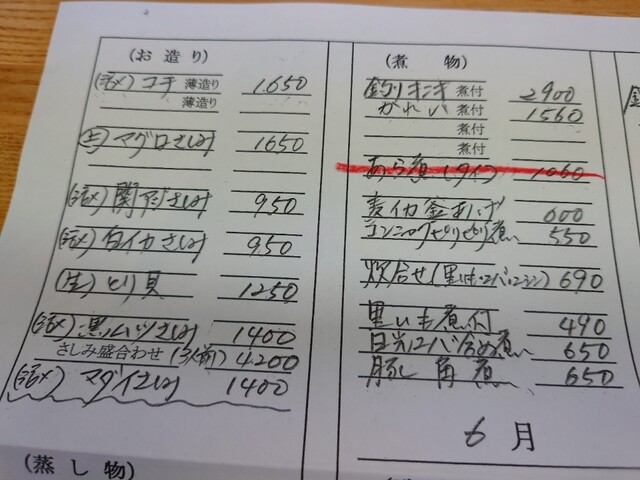 (お造り)
(活〆) コチ 薄造り 1.650
薄造り
(上) マグロさしみ 1650
(活〆) 関アジさしみ 950
(活〆) 白イカさしみ 950
(生) とり貝 1250
(活〆) 黒ムツさしみ 1400
さしみ盛合わせ (3人前) 4200
(活〆) マダイさしみ 1400
(蒸し物)
(煮物)
釣りキンキ 煮付 2900
かれい 煮付 1560
煮付
煮付
あら煮 (タイ) 1060
麦イカ釜あげ 600
コンニャクピリピリ煮 550
炊合せ (里いも、ユバ、ニシン) 690
里いも煮付 490
日光ユバ含め煮 650
豚角煮 650
6月